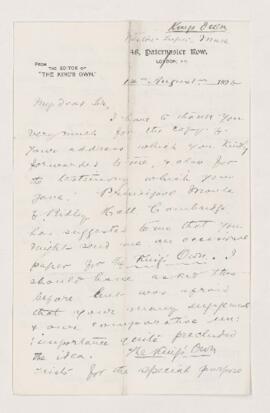 King's Own
48, Paternoster Row,
LONDON,
FROM
THE EDITOR OF
"THE KING'S OWN."
12th August 189
My dear Sir,
I have to thank you
very much for the copy of
your address which you kindly
forwarded to me, & also for
the testimony which you
gave. Principal Moule
of Ridley Hall Cambridge
has suggested to me that you
might send me an occasional
paper for The King's Own. I
should have asked this
before but was afraid
that your many engagements
& our comparative un-
importance quite precluded
the idea. The King's Own
exists for the special purpose